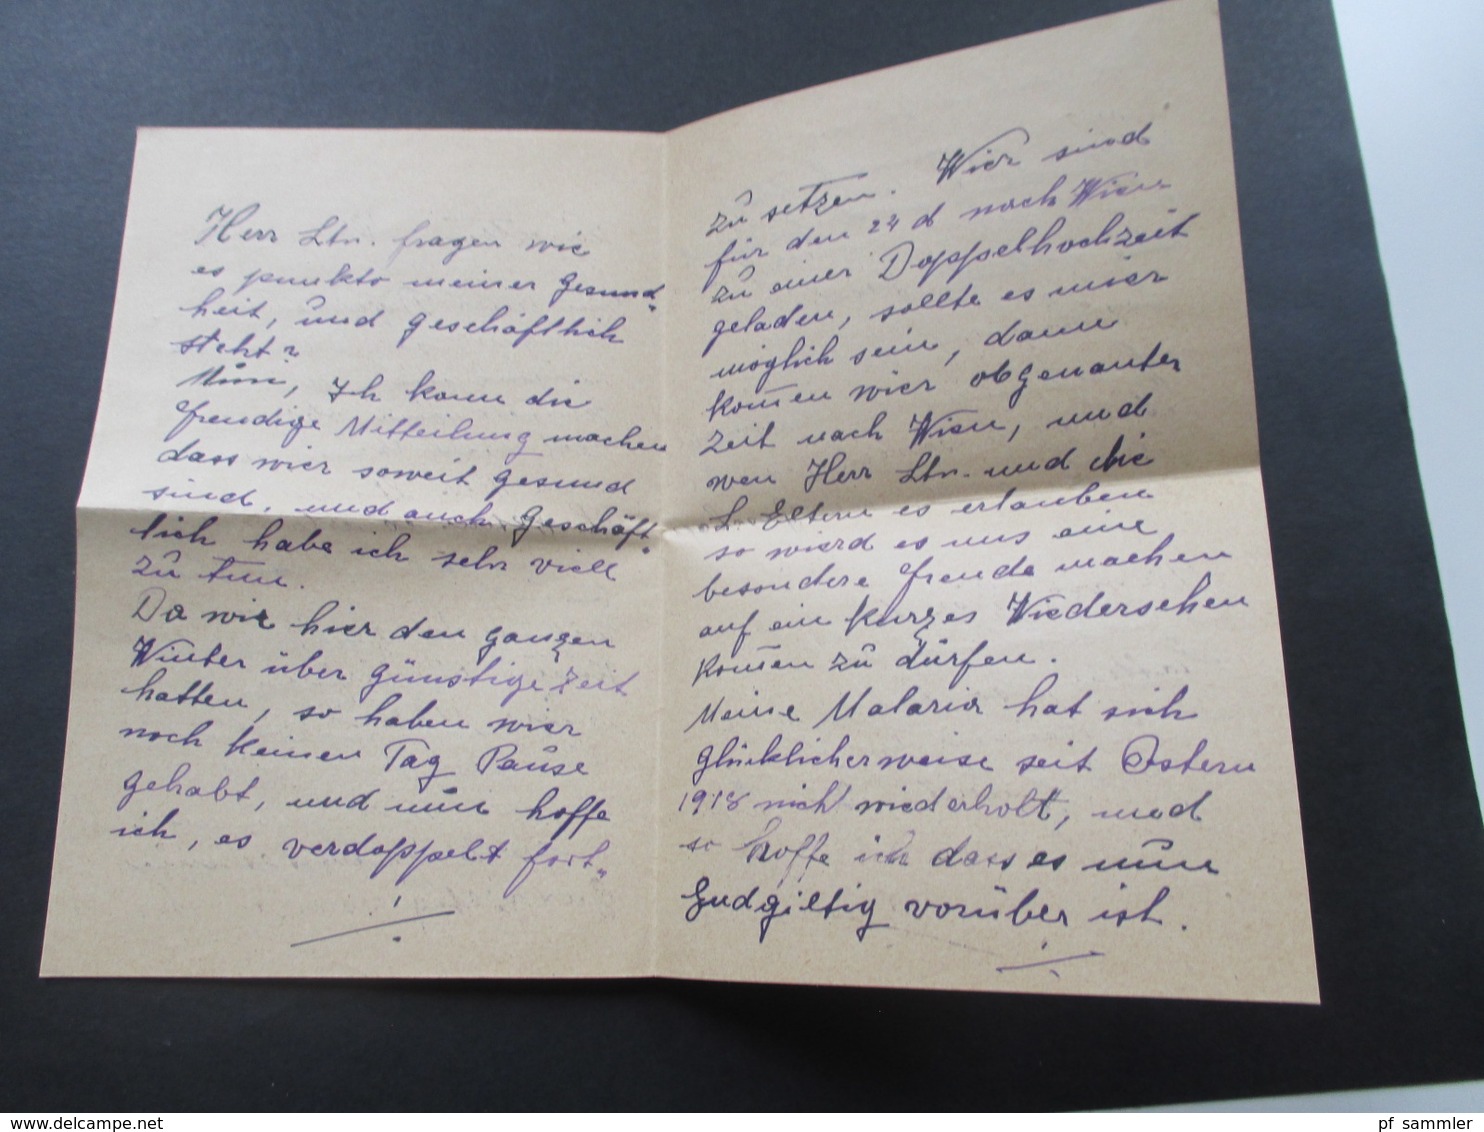 Herr Ltn. fragen wie
es punkto meiner Gesund-
heit, und geschäftlich
steht?
Nun, Ich kann die
freudige Mitteilung machen
dass wier soweit gesund
sind, und auch geschäft-
lich habe ich sehr viell
zu tun.
Da wir hier den ganzen
Winter über günstige Zeit
hatten, so haben wier
noch keinen Tag Pause
gehabt, und nun hoffe
ich, es verdoppelt fort-
zu setzen. Wier sind
für den 24 d nach Wien
zu einer Doppelhochzeit
geladen, sollte es mier
möglich sein, dann
komen wier obgenanter
Zeit nach Wien, und
wen Herr Ltn. und die
L. Eltern es erlauben
so wierd es uns eine
besondere freude machen
auf ein kurzes Wiedersehen
komen zu dürfen.
Meine Malaria hat sich
glücklicherweise seit Ostern
1918 nicht wiederholt, und
so hoffe ich dass es nun
Endgiltig vorüber ist.
pf sammler